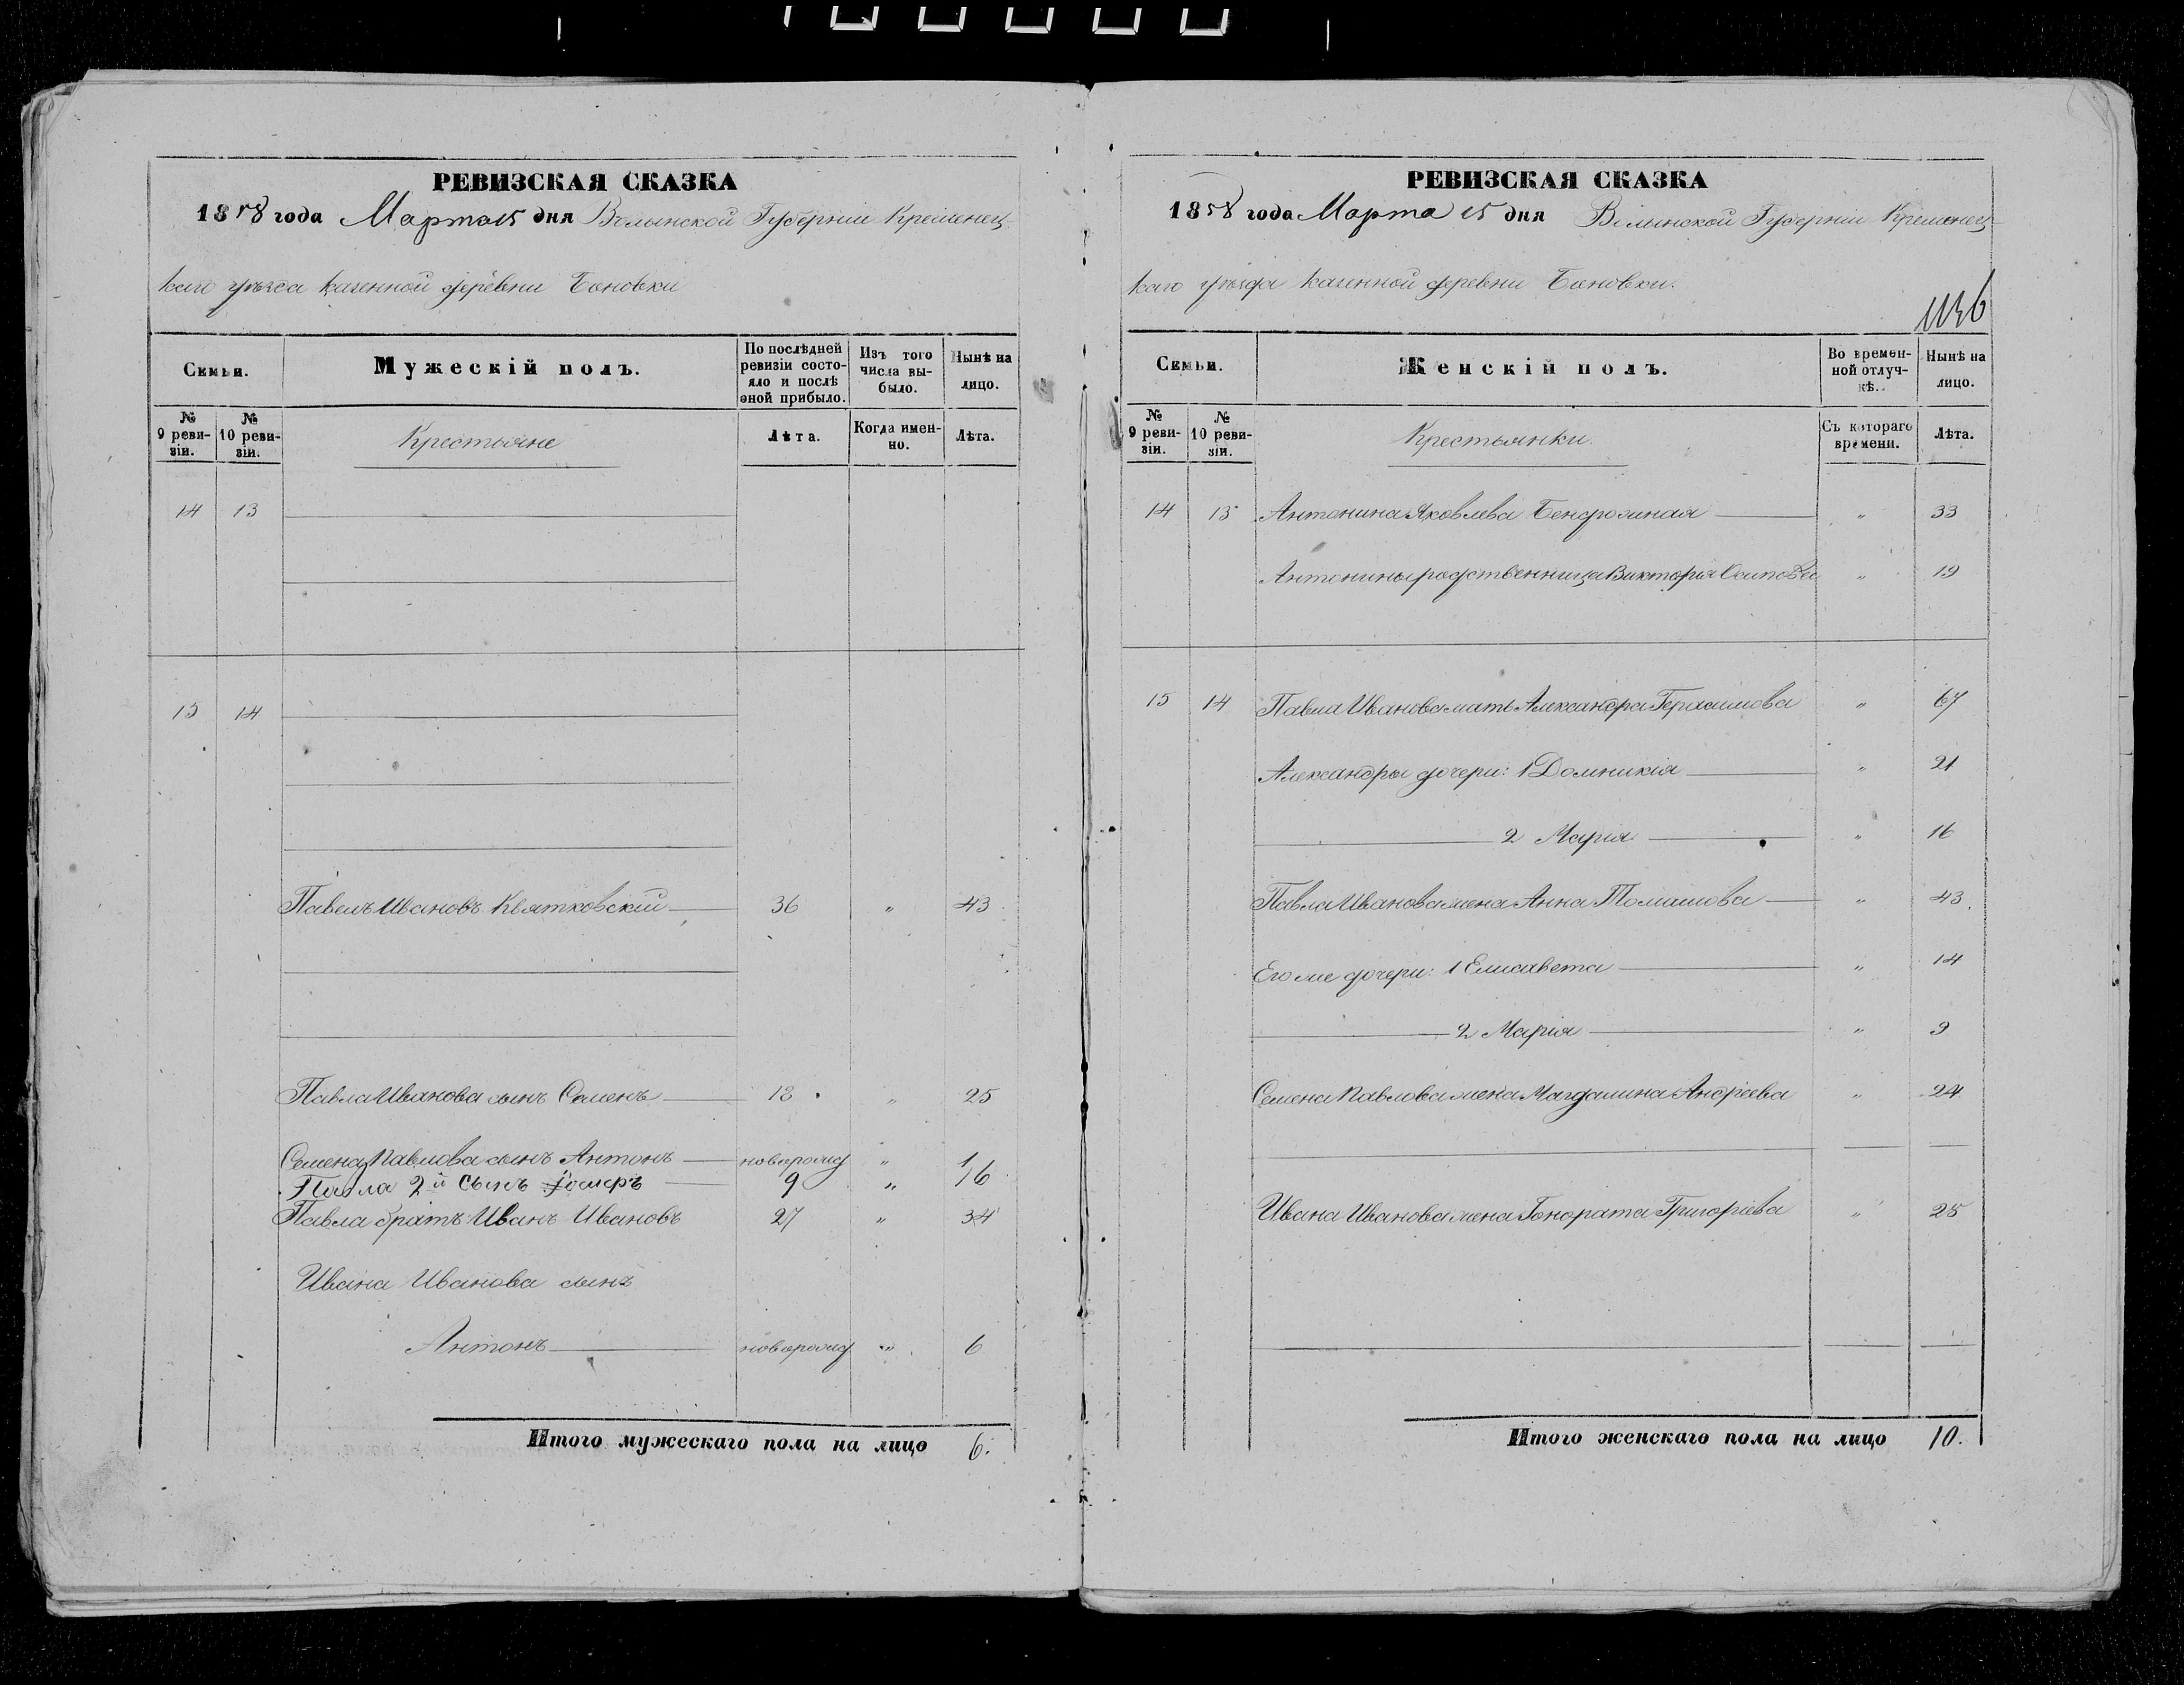 РЕВИЗСКАЯ СКАЗКА
1858 года Марта 15 дня Волынской Губерніи Кременец-
каго уѣзда казенной деревни Боновки
Семьи.
Мужескій полъ.
По послѣдней ревизіи состояло и послѣ оной прибыло.
Изъ того числа выбыло.
Нынѣ на лицо.
№ 9 ревизіи.
№ 10 ревизіи.
Крестьяне
Лѣта.
Когда именно.
Лѣта.
14 13
15 14
Павелъ Ивановъ Квятковскій 36 " 43
Павла Иванова сынъ Семенъ 18 " 25
Семена Павлова сынъ Антонъ новорожд " 1
Павла 2й сынъ 9 " 16
Павла братъ Иванъ Ивановъ 27 " 34
Ивана Иванова сынъ
Антонъ новорожд " 6
Итого мужескаго пола на лицо 6.
РЕВИЗСКАЯ СКАЗКА
1858 года Марта 15 дня Волынской Губерніи Кременец-
каго уѣзда казенной деревни Боновки.
Семьи.
Женскій полъ.
Во временной отлучкѣ.
Нынѣ на лицо.
№ 9 ревизіи.
№ 10 ревизіи.
Крестьянки
Съ котораго времени.
Лѣта.
14 13 Антонина Яковлева " 33
Антонины родственница Викторія Осипова " 19
15 14 Павла Иванова мать Александра Герасимова " 67
Александры дочери: 1 Домникія " 21
2 Марія " 16
Павла Иванова жена Анна Томашова " 43
Его же дочери: 1 Елисавета " 14
2 Марія " 9
Семена Павлова жена Магдалина Андреева " 24
Ивана Иванова жена Гонората Григоріева " 25
Итого женскаго пола на лицо 10.